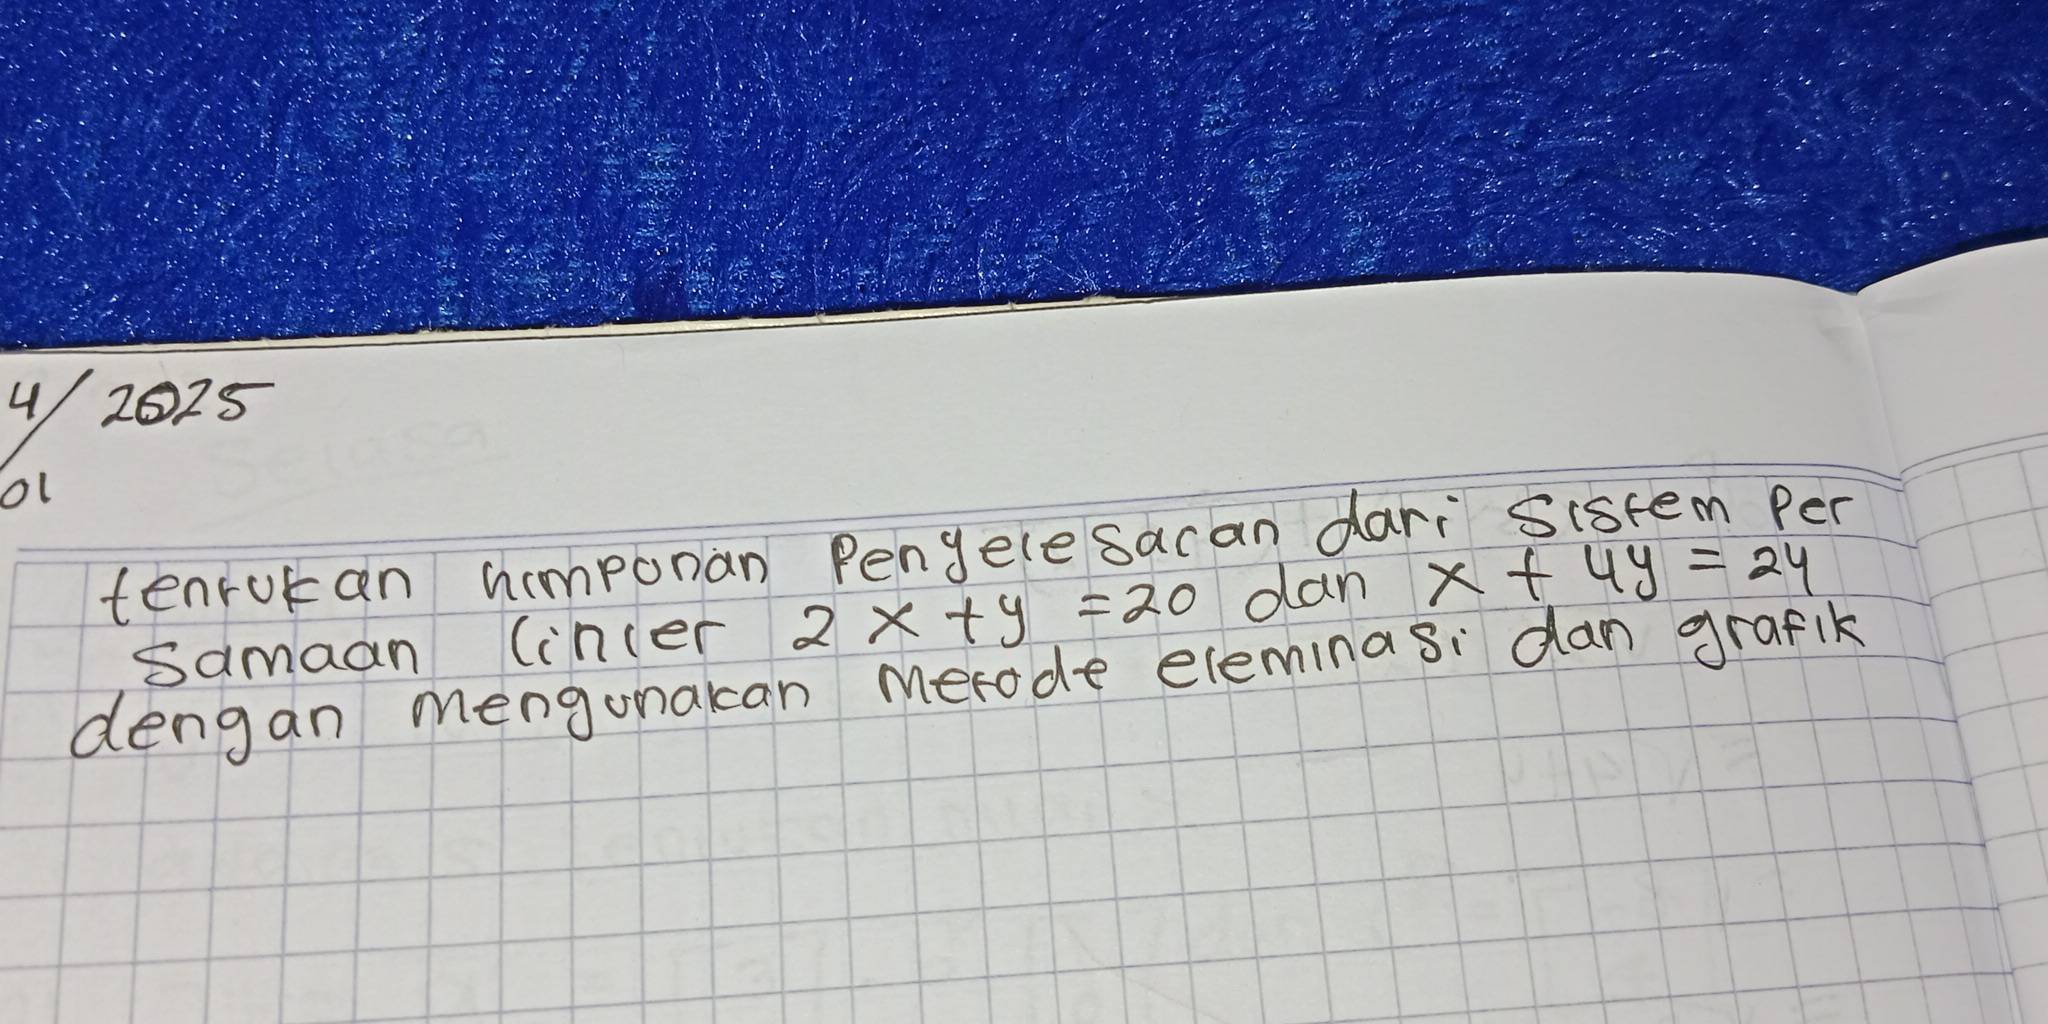 4/2025
01
tentukan himpunan Pengelesaian dari Sistem Per
samaan linier 2x + y = 20 dan x + 4y = 24
dengan mengunakan Metode eleminasi dan grafik